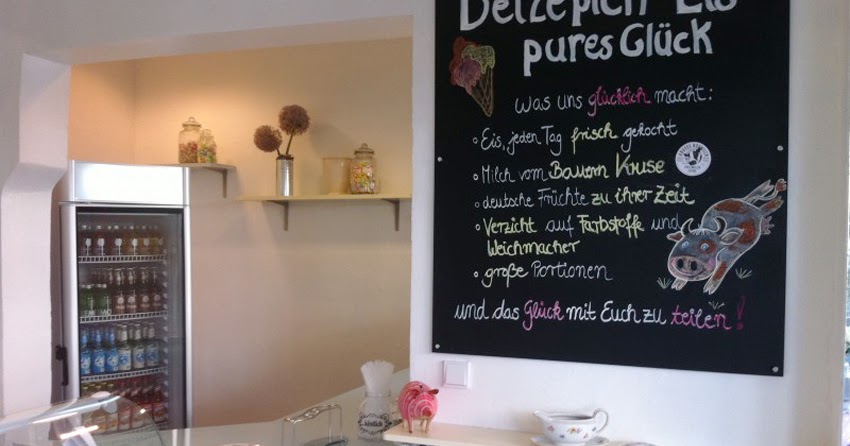 Delzepich Eis
pures Glück
Was uns glücklich macht:
Eis, jeden Tag frisch gekocht
Milch vom Bauern Kruse
deutsche Früchte zu ihrer Zeit
Verzicht auf Farbstoffe und
Weichmacher
große Portionen
und das Glück mit Euch zu teilen!
köstlich